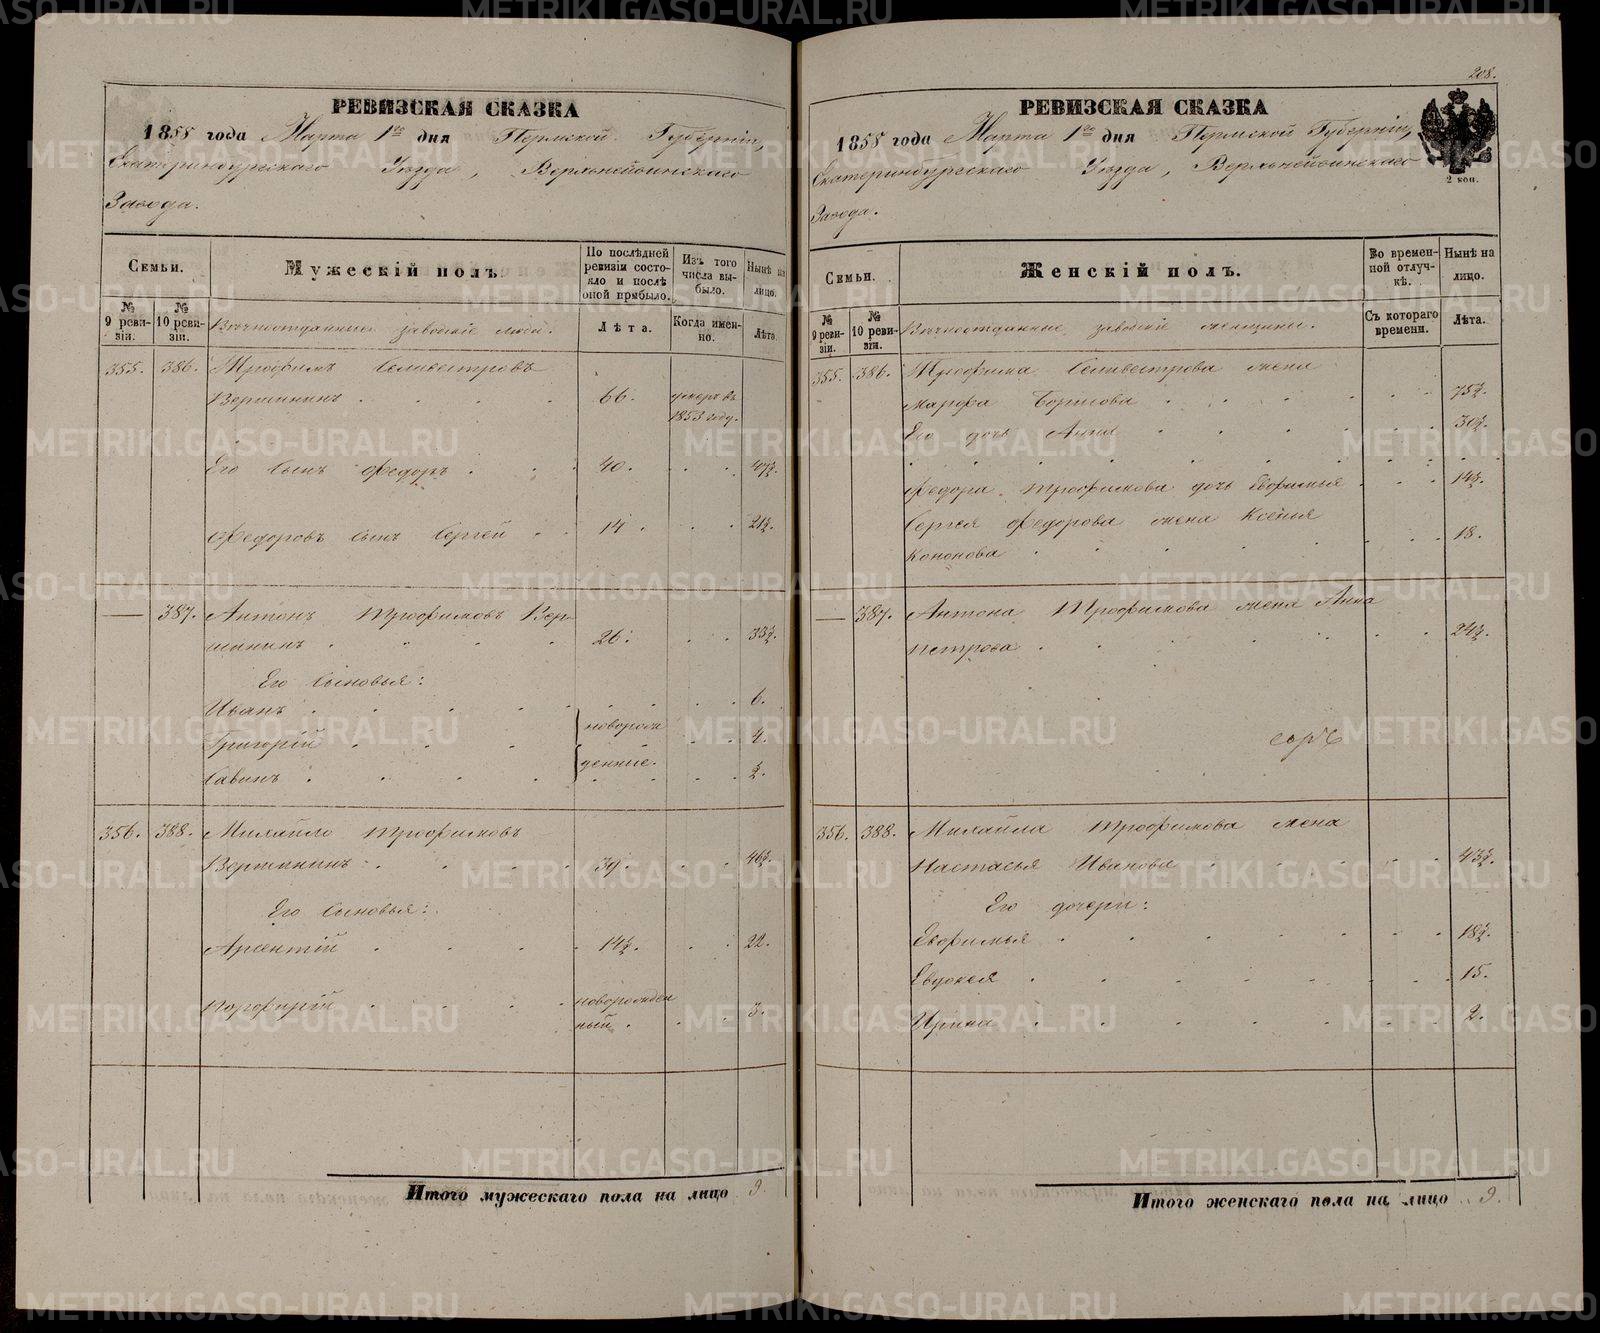 РЕВИЗСКАЯ СКАЗКА
1858 года Марта 1го дня Пермской Губерніи,
Екатеринбургскаго Уѣзда, Верхнейвинскаго
Завода.
Семьи.
Мужескій полъ.
По послѣдней ревизіи состояло и послѣ оной прибыло.
Изъ того числа выбыло.
Нынѣ на лицо.
№ 9 ревизіи.
№ 10 ревизіи.
Вѣчноотданные заводскіе люди.
Лѣта.
Когда именно.
Лѣта.
355. 386. Трофимъ Селивестровъ
Вершининъ 66. умеръ въ 1853 году.
Его сынъ Федоръ 40. 47½.
Федоровъ сынъ Сергей 14. 21½.
— 387. Антонъ Трофимовъ Вер-
шининъ 26. 33½.
Его сыновья:
Иванъ 6.
Григорій новорож- 4.
Савинъ денные. ½.
356. 388. Михайло Трофимовъ
Вершининъ 39. 46½.
Его сыновья:
Арсентій 14½. 22.
Порфирій новорожден
ный 3.
Итого мужескаго пола на лицо 9.
208.
РЕВИЗСКАЯ СКАЗКА
1858 года Марта 1го дня Пермской Губерніи,
Екатеринбургскаго Уѣзда, Верхнейвинскаго
Завода.
2 коп.
Семьи.
Женскій полъ.
Во временной отлучкѣ.
Нынѣ на лицо.
№ 9 ревизіи.
№ 10 ревизіи.
Вѣчноотданные заводскіе женщины.
Съ котораго времени.
Лѣта.
355. 386. Трофима Селивестрова жена
Марфа Борисова 75½.
Его дочь Анна 30½.
Федора Трофимова дочь Евфимья 14½.
Сергея Федорова жена Ксенія
Кононова 18.
— 387. Антона Трофимова жена Анна
Петрова 24½.
356. 388. Михайла Трофимова жена
Настасья Иванова 43½.
Его дочери:
Евфимья 18½.
Евдокея 15.
Ирина 2.
Итого женскаго пола на лицо 9.
METRIKI.GASO-URAL.RU